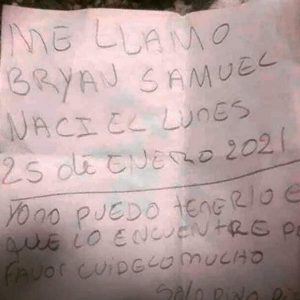 ME LLAMO
BRYAN SAMUEL
NACI EL LUNES
25 de ENERO 2021
YO NO PUEDO TENERLO E
QUE LO ENCUENTRE P
FAVOR CUIDELO MUCHO